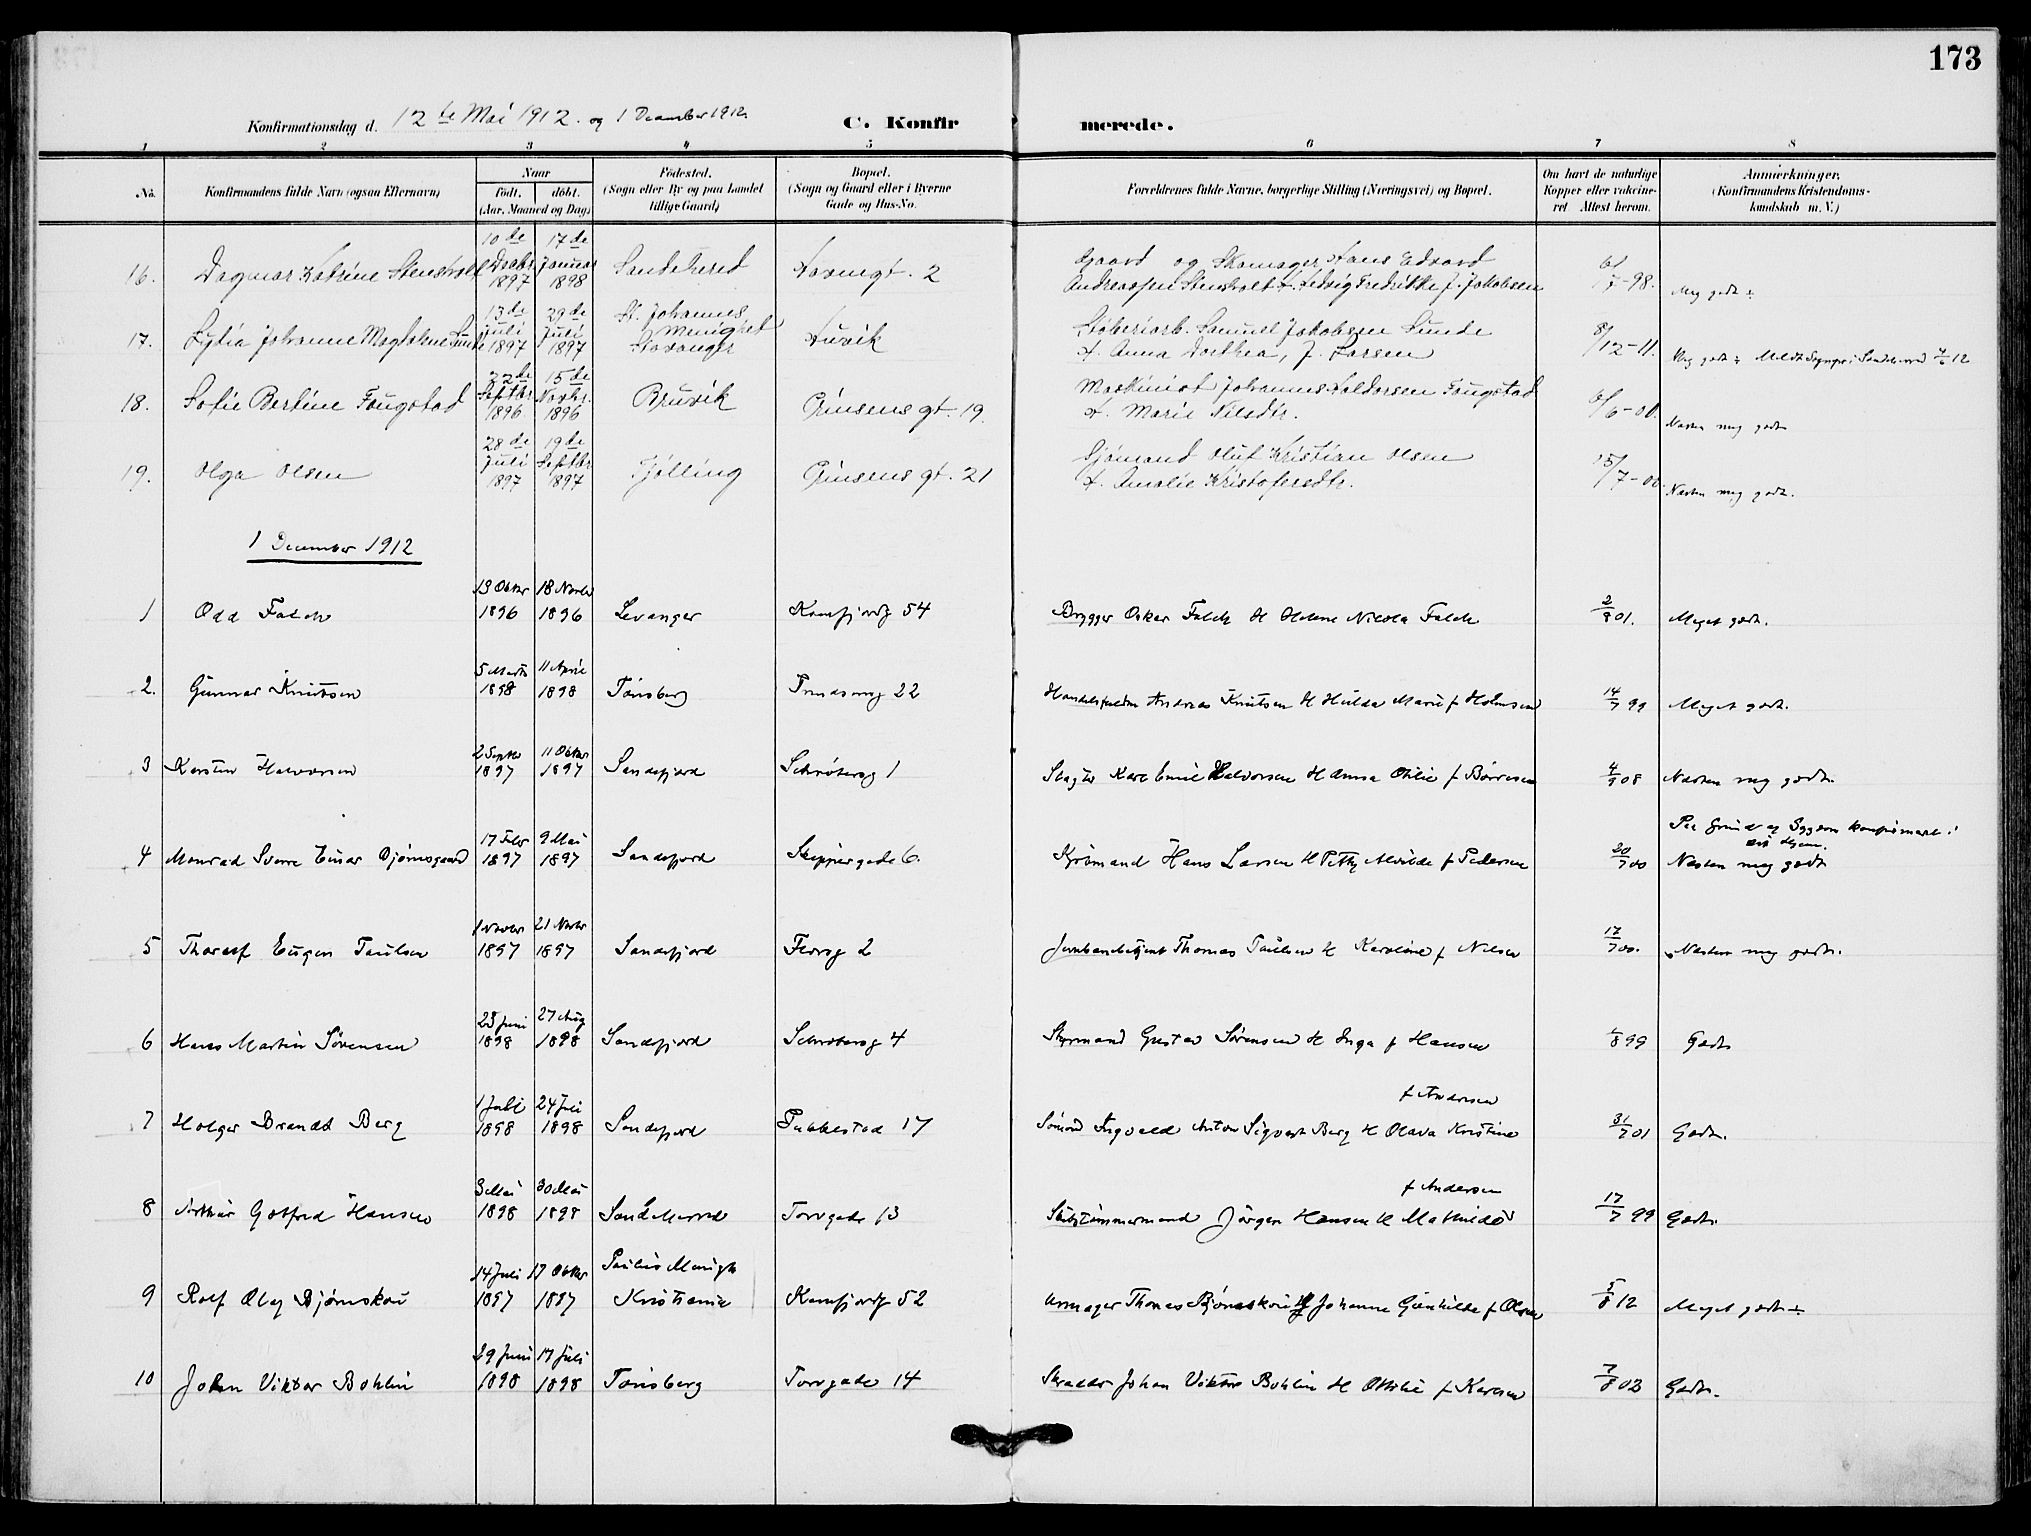 173
Konfirmationsdag d. 12te Mai 1912. og 1 December 1912
C. Konfirmerede.
1 2 3 4 5 6 7 8
No.
Konfirmandens fulde Navn (ogsaa Efternavn)
Naar
født. døbt.
(Aar, Maaned og Dag)
Fødested.
(Sogn eller By og paa Landet
tillige Gaard)
Bopæl.
(Sogn og Gaard eller i Byerne
Gade og Hus-No.
Forældrenes fulde Navne, borgerlige Stilling (Næringsvei) og Bopæl.
Om havt de naturlige
Kopper eller vaccine-
ret Attest herom.
Anmærkninger,
(Konfirmandens Kristendoms-
kundskab m. V.)
16. Dagmar Katrine Stensholt 10de Decbr 1897 17de Januar 1898 Sandeherred 2
og Skomager Hans Edvard
Andreassen Stensholt & Hedvig Fredrikke f. Jakobsen 7-98. Meg godt ÷
17. Lydia Johanne Magdalene Sunde 13de Juli 1897 29de Juli 1897 St. Johannes Menighed Stavanger Huvik
Støberiarb. Samuel Jakobsen Sunde
& Anna Dorthea, f. Larsen 8/12-11. Meg godt ÷
18. Sofie Bertine Fougstad 22de Septbr 1896 15de Novbr. 1896 Bruvik Prinsens gt. 19.
Maskinist Johannes Haldorsen Fougstad
& Marie Nilsdtr. 6/6-00. Næsten meg godt
19. Olga Olsen 28de Juli 1897 19de Septbr 1897 Tjølling Prinsens gt. 21
Sjömand Oluf Kristian Olsen
& Amalie Kristofersdtr. 15/7-00 Næsten meg godt.
1 December 1912
1 Odd Falch 13 Oktbr 1896 18 Novbr 1896 Levanger Kamfjordg 54 Brygger Oskar Falch & Helene Nicola Falch 2/9 01. Meget godt.
2. Gunnar Knutsen 5 Marts 1898 11 April 1898 Tønsberg 22 Andreas Knutsen & Hulda Marie f Holmsen 14/7 99 Meget godt.
3 Karsten Halvorsen 2 Septbr 1897 11 Oktbr 1897 Sandefjord Schrøtersg 1 Slagter Karl Emil Halvorsen & Anna Otilie f Børresen 4/9 08 Næsten meg godt.
4 Monrad Sverre Einar Bjørnsgaard 17 Febr 1897 9 Mai 1897 Sandefjord Skippergade 6. Styrmand Hans Larsen & Petty Alvilde f Pedersen 20/7 00
Paa Grund af Sygdom konfirmert i
sit Hjem.
Næsten meg godt
5 Thoralf Eugen Paulsen 1 Novbr 1897 21 Novbr 1897 Sandefjord 2 Jernbanebetjent Thomas Paulsen & Karoline f Nilsen 17/7 00. Næsten meg godt.
6 Hans Martin Sørensen 23 Juni 1898 27 Aug 1898 Sandefjord Schrøtersg 4 Styrmand Gustav Sørensen & Inga f Hansen 8 99 Godt
7 Holger Brandt Berg 1 Juli 1898 24 Juli 1898 Sandefjord Pukkestad 17 Sømand Ingvald Anton Sigvart Berg & Olava Kristine f Andersen 31/7 01 Godt.
8 Arthur Gotfred Hansen 3 Mai 1898 30 Mai 1898 Sandeherred Torvgade 13 Skibstømmermand Jörgen Hansen & Mathilde f Andersen 17/7 99 Godt.
9 Rolf Olaf Bjørnskau 14 Juli 1897 17 Oktbr 1897 Paulus Menigh Kristiania Kamfjordg 52 Urmager Thomas Bjørnskau & Johanne Gunhilde f Olsen 5/8 12 Meget godt ÷
10 John Viktor Bohlin 29 Juni 1898 17 Juli 1898 Tønsberg Torvgade 14 Skrædder Johan Viktor Bohlin & Ottilie f Karlsen 7/8 03 Godt.